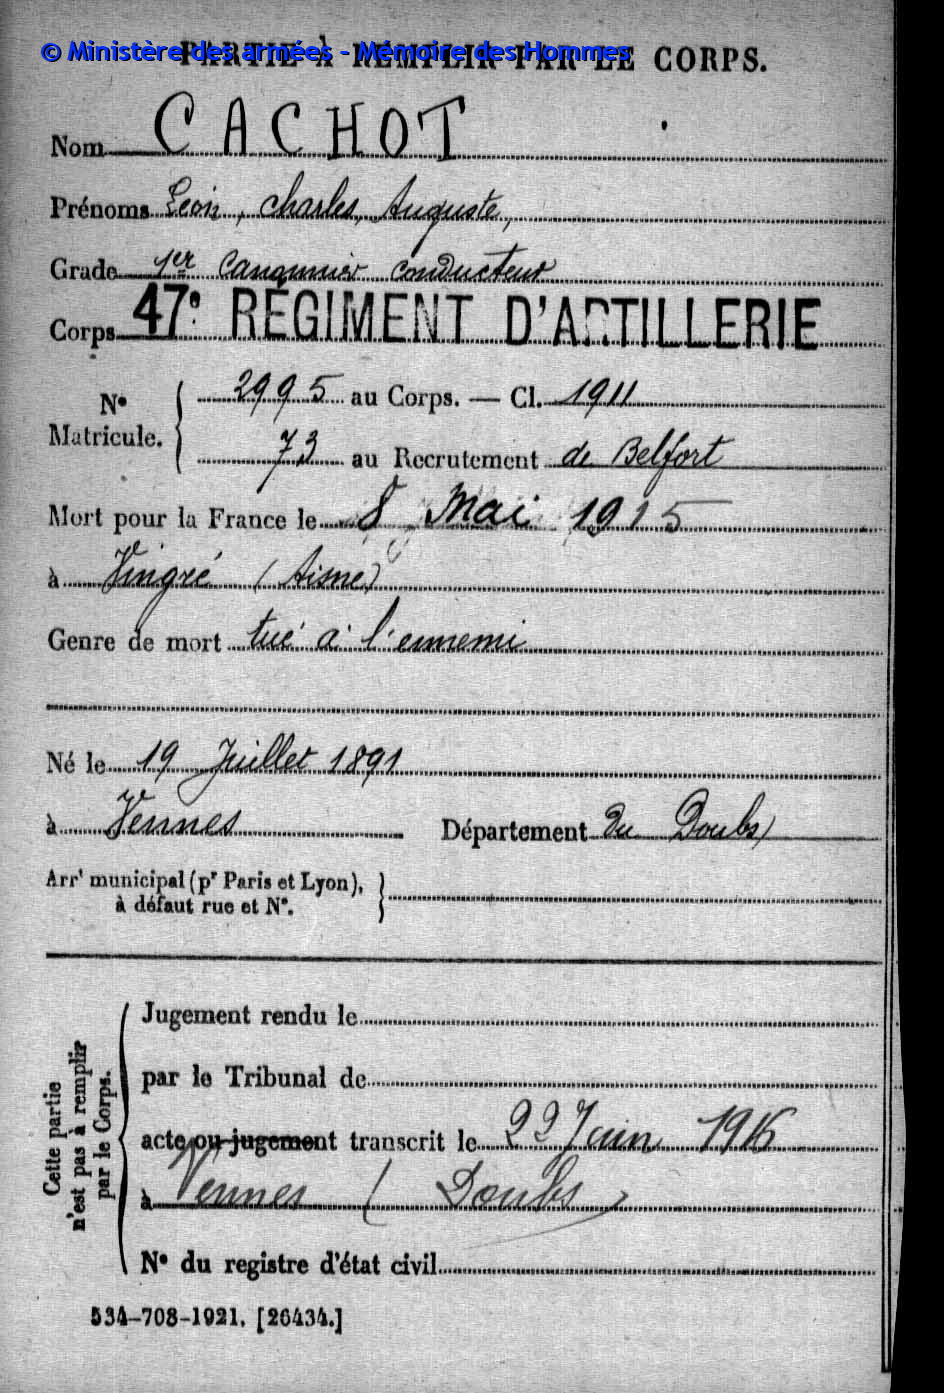 © Ministère des armées - Mémoire des Hommes
PARTIE À REMPLIR PAR LE CORPS.
Nom CACHOT
Prénoms Léon, Charles, Auguste,
Grade 1er Canonnier conducteur
Corps 47e RÉGIMENT D'ARTILLERIE
N° Matricule. { 2995 au Corps. — Cl. 1911
73 au Recrutement de Belfort
Mort pour la France le 8 Mai 1915
à Vingré (Aisne)
Genre de mort tué à l'ennemi
Né le 19 Juillet 1891
à Vennes Département du Doubs
Arrt municipal (pr Paris et Lyon), }
à défaut rue et N°.
Cette partie
n'est pas à remplir
par le Corps.
Jugement rendu le
par le Tribunal de
acte ou jugement transcrit le 22 Juin 1915
à Vennes (Doubs)
N° du registre d'état civil
534-708-1921. [26434.]